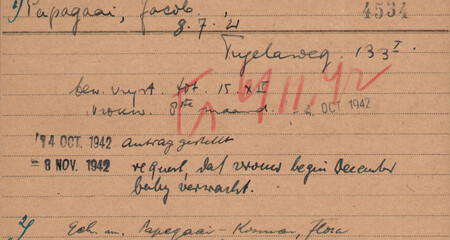 1) Papagaai, Jacob. 4534
8.7.'21
Tugelaweg. 133 I
bew. vrijst. tot. 15.XI
vrouw. 8ste maand. - OCT 1942
14 OCT. 1942 Antrag gestellt
= 8 NOV. 1942 request, dat vrouw begin December
baby verwacht.
2) Geh. m. Papegaai - Flora